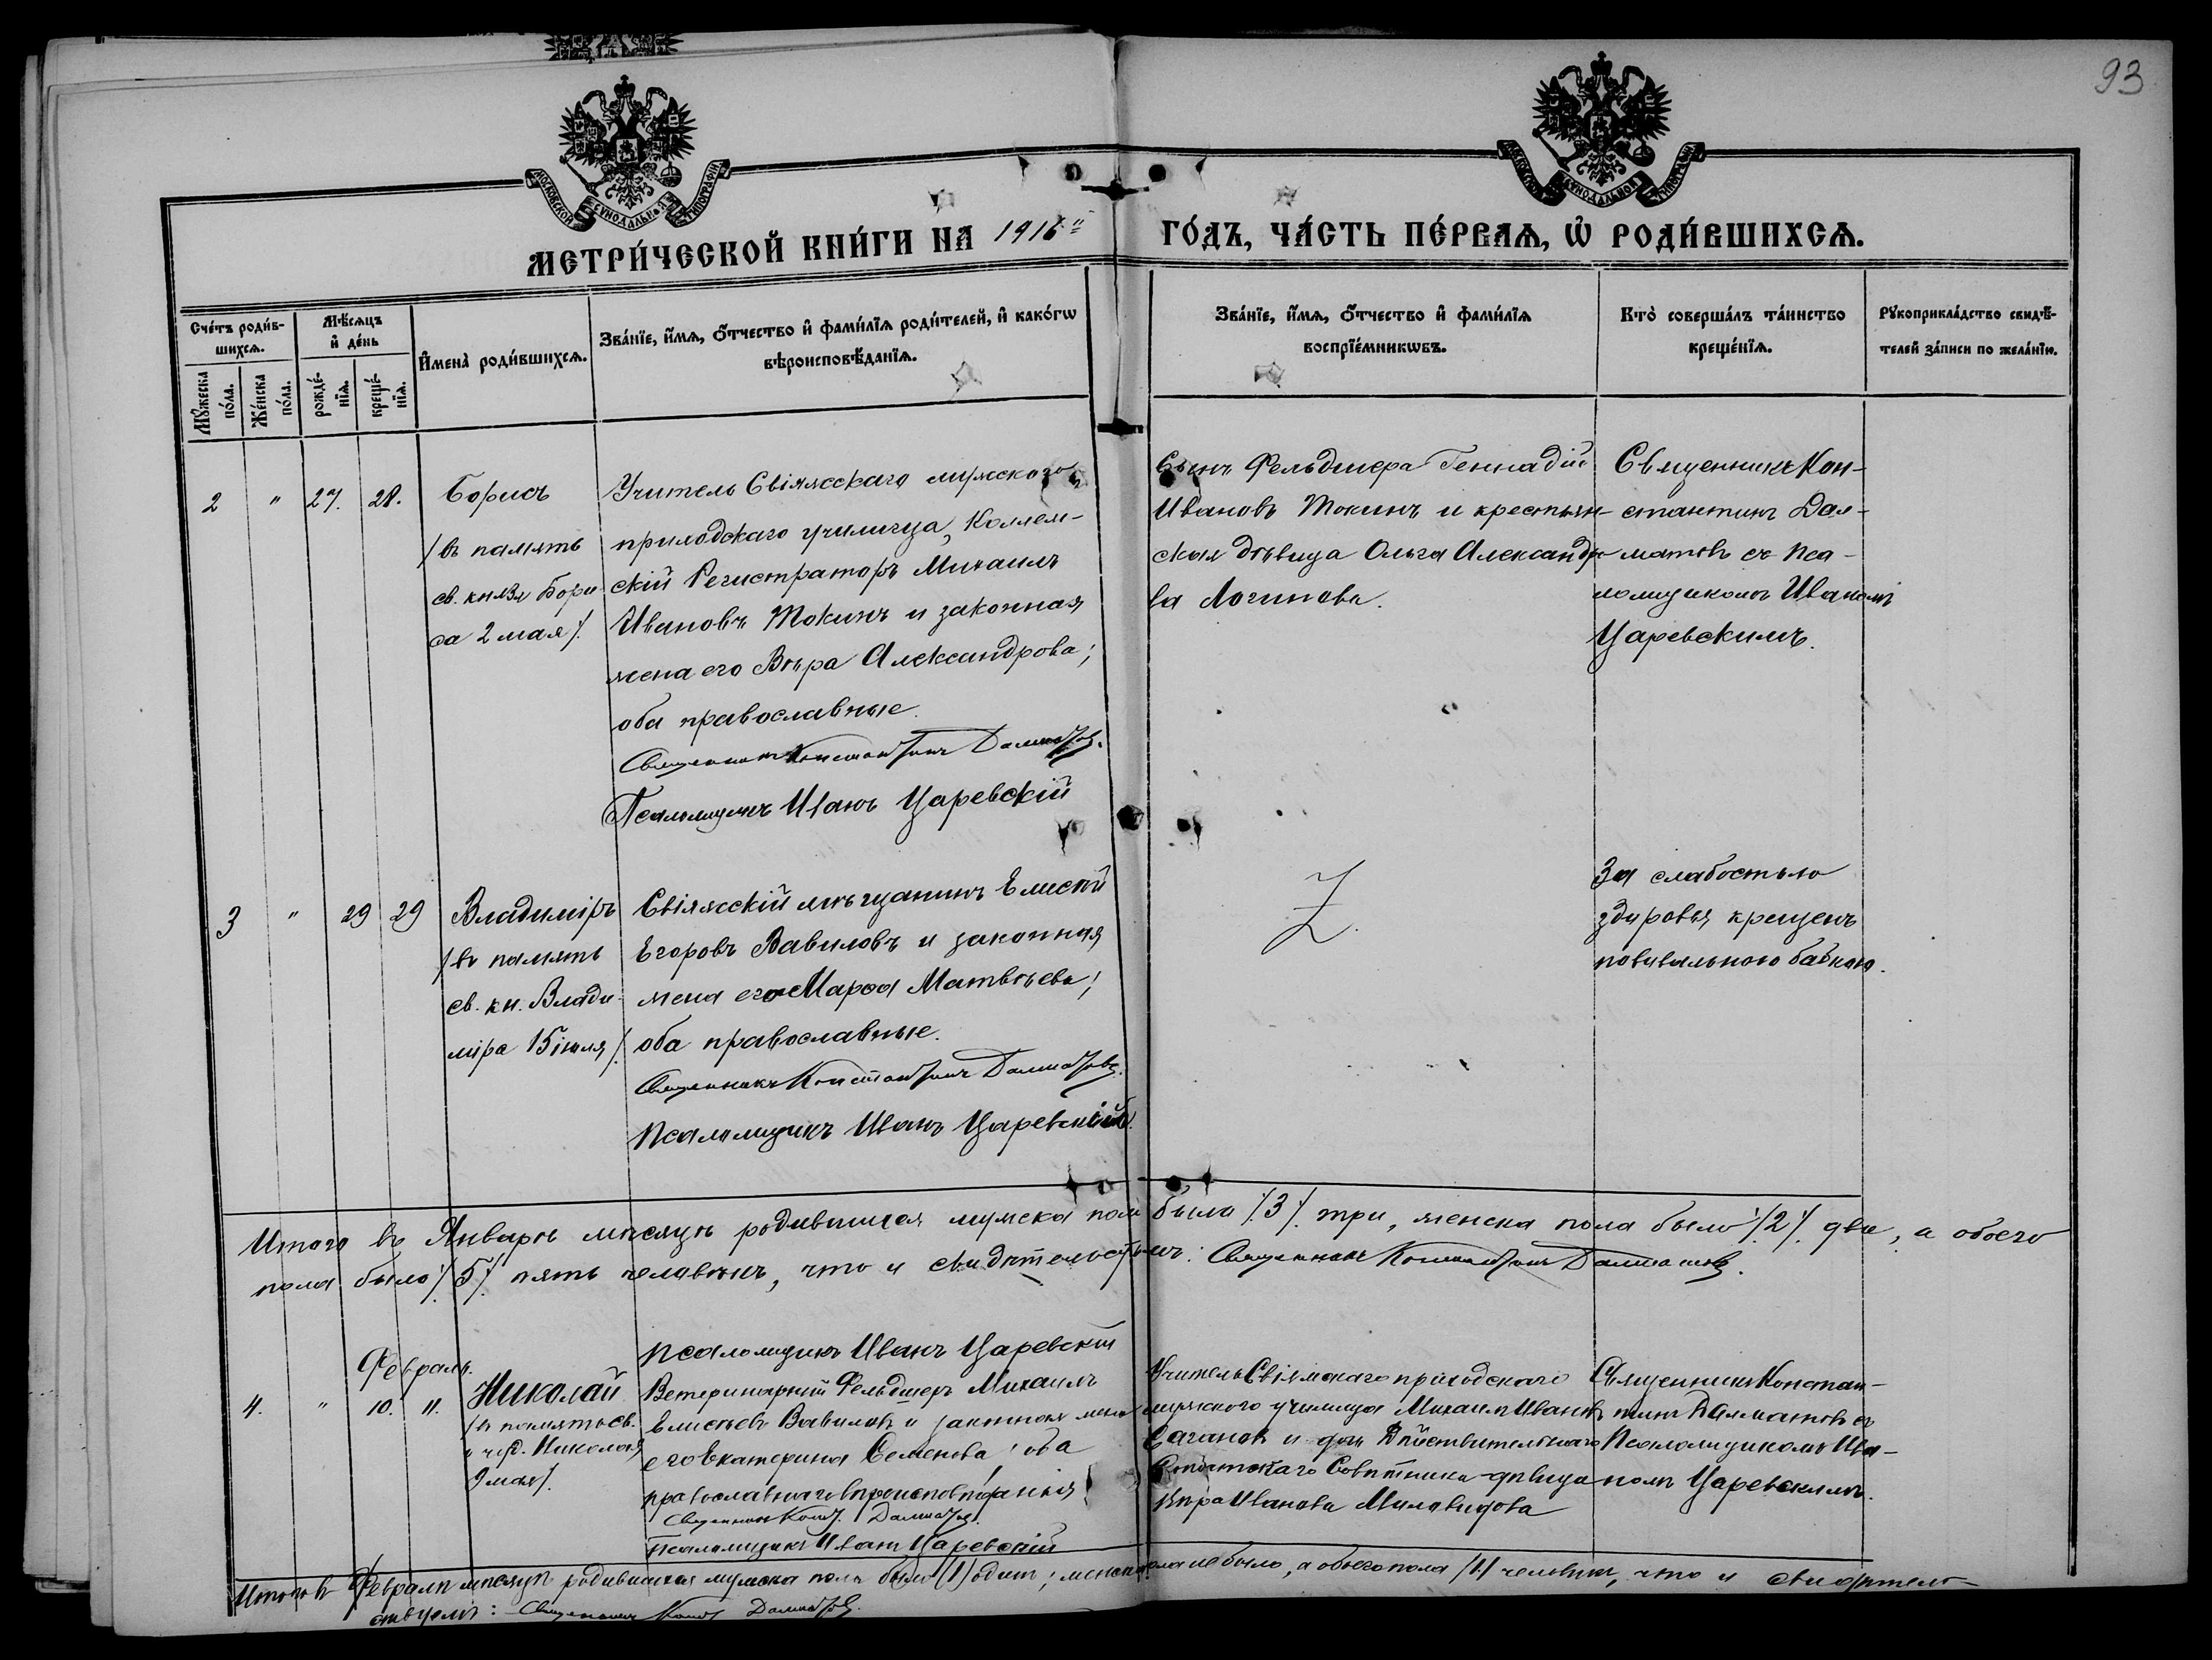 93
МОСКОВСКОЙ СѴНОДАЛЬНОЙ ТИПОГРАФІИ
МОСКОВСКОЙ СѴНОДАЛЬНОЙ ТИПОГРАФІИ
МЕТРИ́ЧЕСКОЙ КНИ́ГИ НА 1916й ГО́ДЪ, ЧА́СТЬ ПЕ́РВАѦ, Ѡ҆ РОДИ́ВШИХСѦ.
Сче́тъ роди́в-
шихсѧ.
Мꙋ́жеска
по́ла.
Же́нска
по́ла.
Мѣ́сѧцъ
и҆ де́нь
рожде́-
нїѧ.
креще́-
нїѧ.
И҆мена̀ роди́вшихсѧ.
Зва́нїе, и҆́мѧ, ѻ҆́тчество и҆ фами́лїѧ роди́телей, и҆ како́гѡ
вѣроисповѣ́данїѧ.
Зва́нїе, и҆́мѧ, ѻ҆́тчество и҆ фами́лїѧ
воспрїе́мникѡвъ.
Кто̀ соверша́лъ та́инство
креще́нїѧ.
Рꙋкоприкла́дство свидѣ́-
телей за́писи по жела́нїю.
2 " 27. 28.
Борисъ
/въ память
св. князя Бори
са 2 мая/.
Учитель Свіяжскаго мужского
приходскаго училища, Коллеж-
скій Регистраторъ Михаилъ
Ивановъ Токинъ и законная
жена его Вѣра Александрова;
оба православные.
Священникъ Константинъ Далматовъ.
Псаломщикъ Иванъ Царевскій
Сынъ Фельдшера Геннадій
Ивановъ Токинъ и крестьян-
ская дѣвица Ольга Александро
ва Логинова.
Священникъ Кон-
стантинъ Дал-
матовъ съ пса-
ломщикомъ Иваномъ
Царевскимъ.
3 " 29 29
Владиміръ
/въ память
св. кн. Влади-
міра 15 іюля/.
Свіяжскій мѣщанинъ Елисѣй
Егоровъ Вавиловъ и законная
жена его Марѳа Матвѣева;
оба православные.
Священникъ Константинъ Далматовъ.
Псаломщикъ Иванъ Царевскій
Z.
За слабостью
здоровья крещенъ
повивальною бабкою.
Итого въ Январѣ мѣсяцѣ родившихся мужска пола было /3/. три, женска пола было /2/. два, а обоего
пола было /5/. пять человѣкъ, что и свидѣтельствуемъ: Священникъ Константинъ Далматовъ.
Псаломщикъ Иванъ Царевскій
Февраль.
4. " 10. 11.
Николай
/въ память св.
и чуд. Николая
9 мая/.
Ветеринарный Фельдшеръ Михаилъ
Елисѣевъ Вавиловъ и законная жена
его Екатерина Семенова; оба
православнаго вѣроисповѣданія
Священникъ Конст. Далматовъ.
Псаломщикъ Иванъ Царевскій
Учитель Свіяжскаго приходского
мужского училища Михаилъ Ивановъ
Саганов и дочь Дѣйствительнаго
Статскаго Совѣтника дѣвица
Вѣра Иванова Миловидова
Священникъ Констан-
тинъ Далматовъ съ
Псаломщикомъ Ива-
номъ Царевскимъ.
Итого въ Февралѣ мѣсяцѣ родившихся мужска пола было (1) одинъ; женска пола не было, а обоего пола /1/ человѣкъ, что и свидѣтель-
ствуемъ: Священникъ Конст Далматовъ.